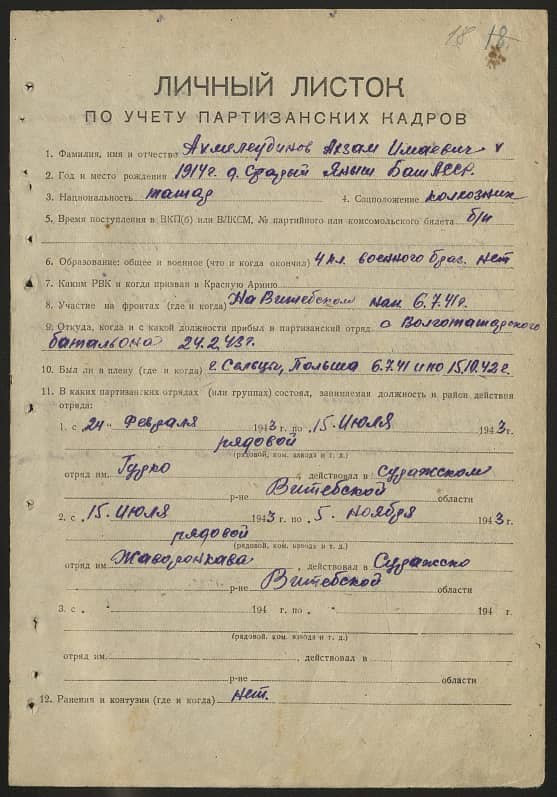 18 18.
ЛИЧНЫЙ ЛИСТОК
ПО УЧЕТУ ПАРТИЗАНСКИХ КАДРОВ
1. Фамилия, имя и отчество Ахмелеудинов Акзам Имаевич
2. Год и место рождения 1914 г. д. Яныш БашАССР.
3. Национальность татар 4. Соцположение колхозник
5. Время поступления в ВКП(б) или ВЛКСМ, № партийного или комсомольского билета б/п
6. Образование: общее и военное (что и когда окончил) 4 кл. военного образ. нет
7. Каким РВК и когда призван в Красную Армию
8. Участие на фронтах (где и когда) На Витебском нап 6.7.41г.
9. Откуда, когда и с какой должности прибыл в партизанский отряд с Волготатарского
батальона 24.2.43г.
10. Был ли в плену (где и когда) г. Сельцы, Польша 6.7.41 и по 15.10.42 г.
11. В каких партизанских отрядах (или группах) состоял, занимаемая должность и район действия
отряда:
1. с 24 Февраля 1943 г. по 15 Июля 1943 г.
рядовой
(рядовой, ком. взвода и т. д.)
отряд им. Гудко , действовал в Суражском
р-не Витебской области
2. с 15 Июля 1943 г. по 5 Ноября 1943 г.
рядовой
(рядовой, ком. взвода и т. д.)
отряд им Жаворонкава , действовал в Суражско
р-не Витебской области
3. с 194 г. по 194 г.
(рядовой, ком. взвода и т. д.)
отряд им. , действовал в
р-не области
12. Ранения и контузии (где и когда) нет.